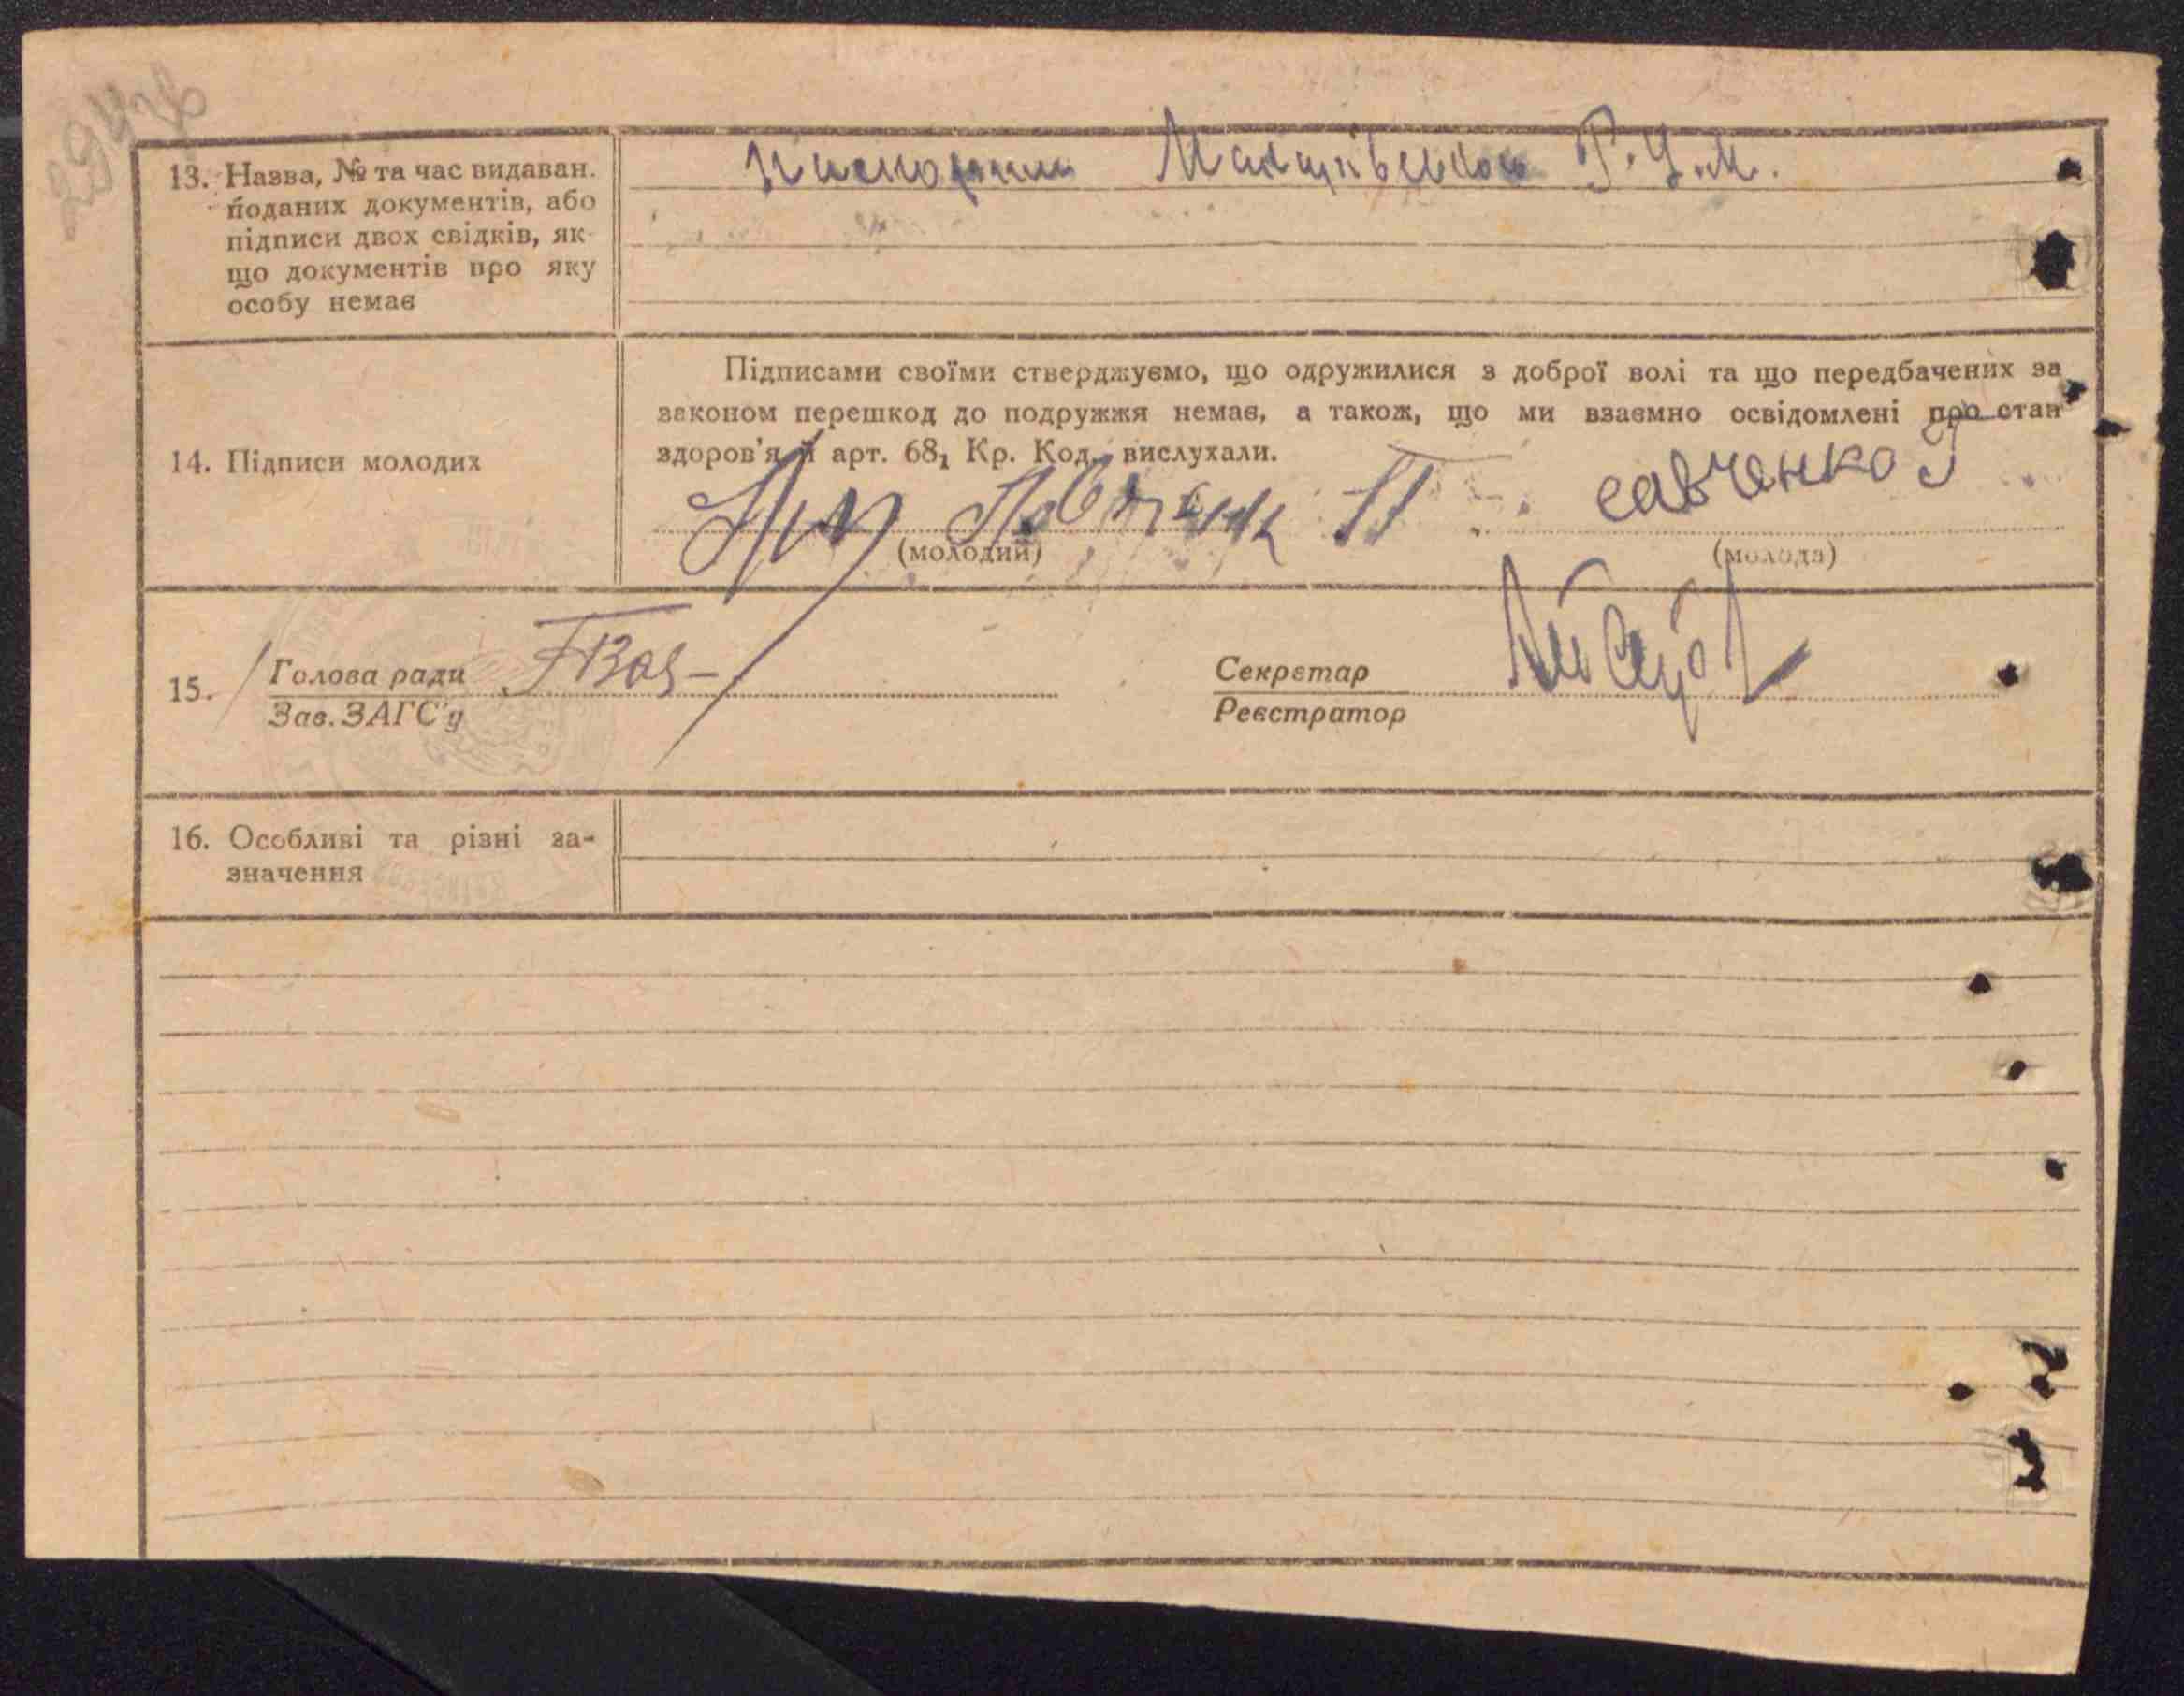 13. Назва, № та час видаван.
поданих документів, або
підписи двох свідків, як-
що документів про яку
особу немає
Р.У.М.
14. Підписи молодих
Підписами своїми стверджуємо, що одружилися з доброї волі та що передбачених за
законом перешкод до подружжя немає, а також, що ми взаємно освідомлені про стан
здоров'я й арт. 68₁ Кр. Код. вислухали.
савченко
(молодий)
(молода)
15. Голова ради
Зав. ЗАГС'у
Секретар
Реєстратор
16. Особливі та різні за-
значення